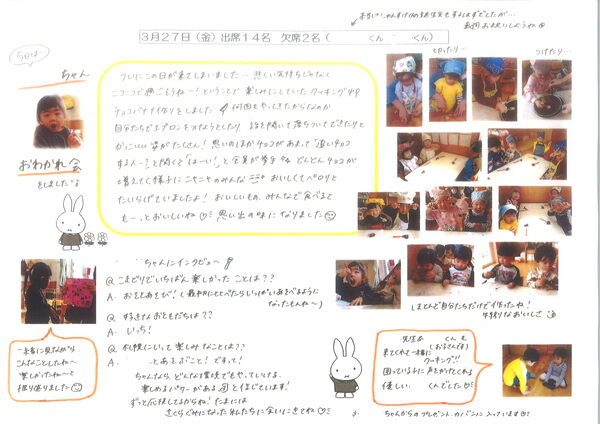 3月27日(金)出席14名 欠席2名( くん・ くん)
ちゃん
おわかれ会
をしました
ついにこの日が来てしまいました… 悲しい気持ちじゃなく
ニコニコで過ごそうね〜!ということで 楽しみにしていたクッキング
チョコバナナ作りをしました 何回もやってきたからなのか、
自分たちでエプロンをつけようとしたり 話を聞いて落ちついてできたりと
かっこいい姿がたくさん! 思いのほかチョコがあまって「追いチョコ
する人〜?」と聞くと「はーい!」と全員が挙手 どんどんチョコが
増えてく様子にニヤニヤのみんな おいしくてペロリと
たいらげていましたよ! おいしいもの、みんなで食べると
もーっとおいしいね 思い出の味になりました
切ったり…
つけたり…
ちゃんにインタビュー
Q こまどりでいちばん楽しかったことは??
A. おそとあそび!
Q 好きなおともだちは??
A. いっち!
Q 札幌にいって楽しみなことは??
A. とあそぶこと!ですって!
ちゃんなら、どんな環境でもやっていける、
楽しめるパワーがあると信じています!
ずっと応援してるからね! たまには
さくらぐみになった私たちに会いにきてね
一緒に見ながら
こんなことしたね〜
楽しかったね〜と
振り返りました
ほとんど自分たちだけで作ったね!
先生と くんも
来てくれて一緒に
クッキング!!
困っている子に声をかけてくれる
優しい くんでした
ちゃんからのプレゼント、カバンに入っています